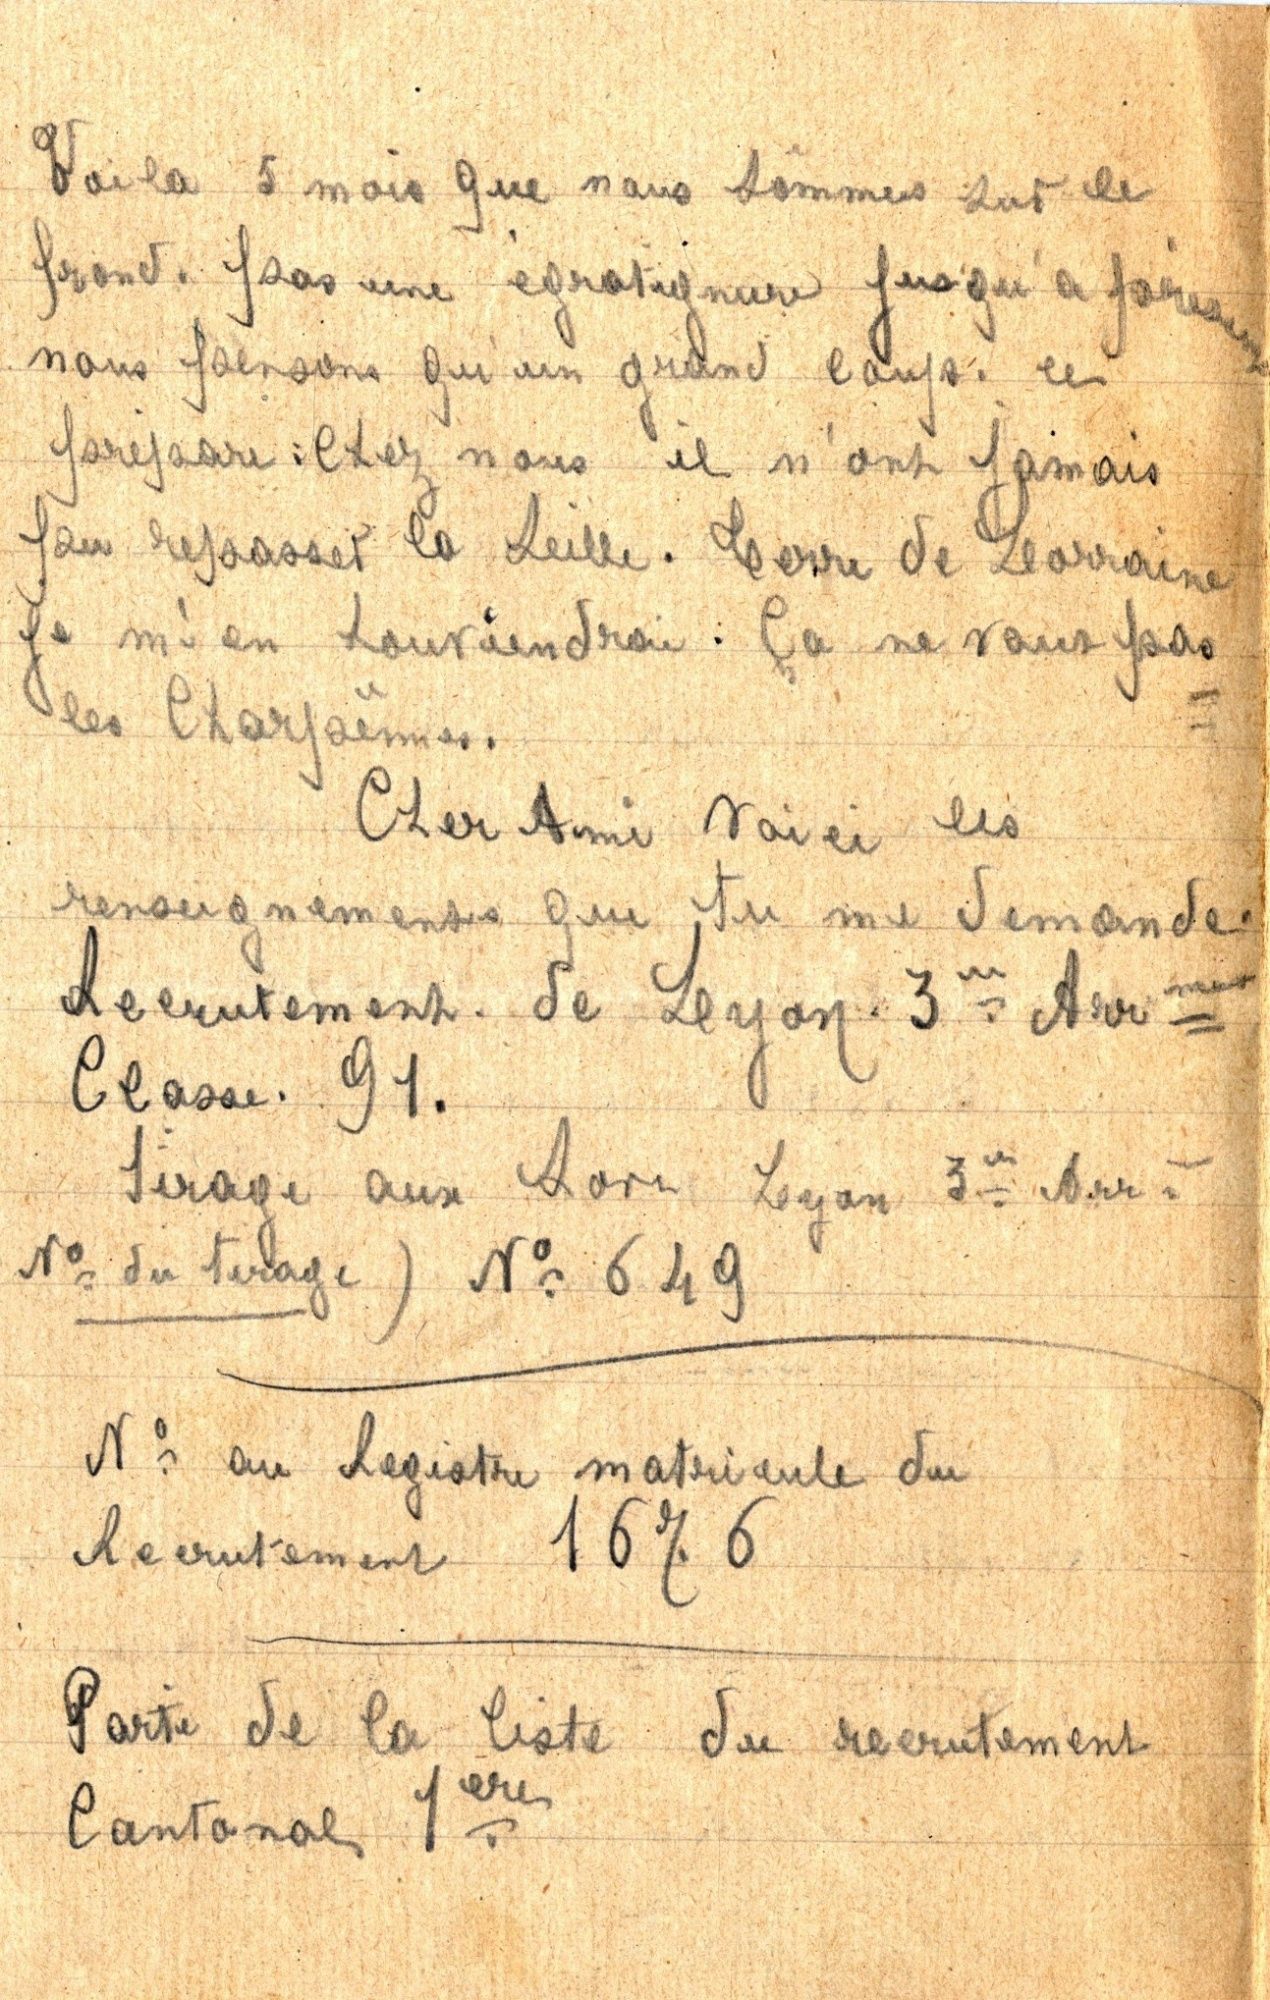 Voila 5 mois que nous sômmes sur le
frond. pas une égratignure jusqu'à présent
nous pensons qu'un grand coups. ce
prépare : Chez nous il n'ont jamais
pu repasser la Seille. Terre de Lorraine
je m'en souviendrai. Ça ne vaut pas
les Charpënnes.
Cher Ami voici les
renseignements que tu me demande.
Recrutement. de Lyon. 3me Arr
Classe. 91.
Tirage aux Sort Lyon 3me Arrt
No du tirage) No 649
No au Registre matricule du
Recrutement 1676
Partie de la liste du recrutement
Cantonal 1ere